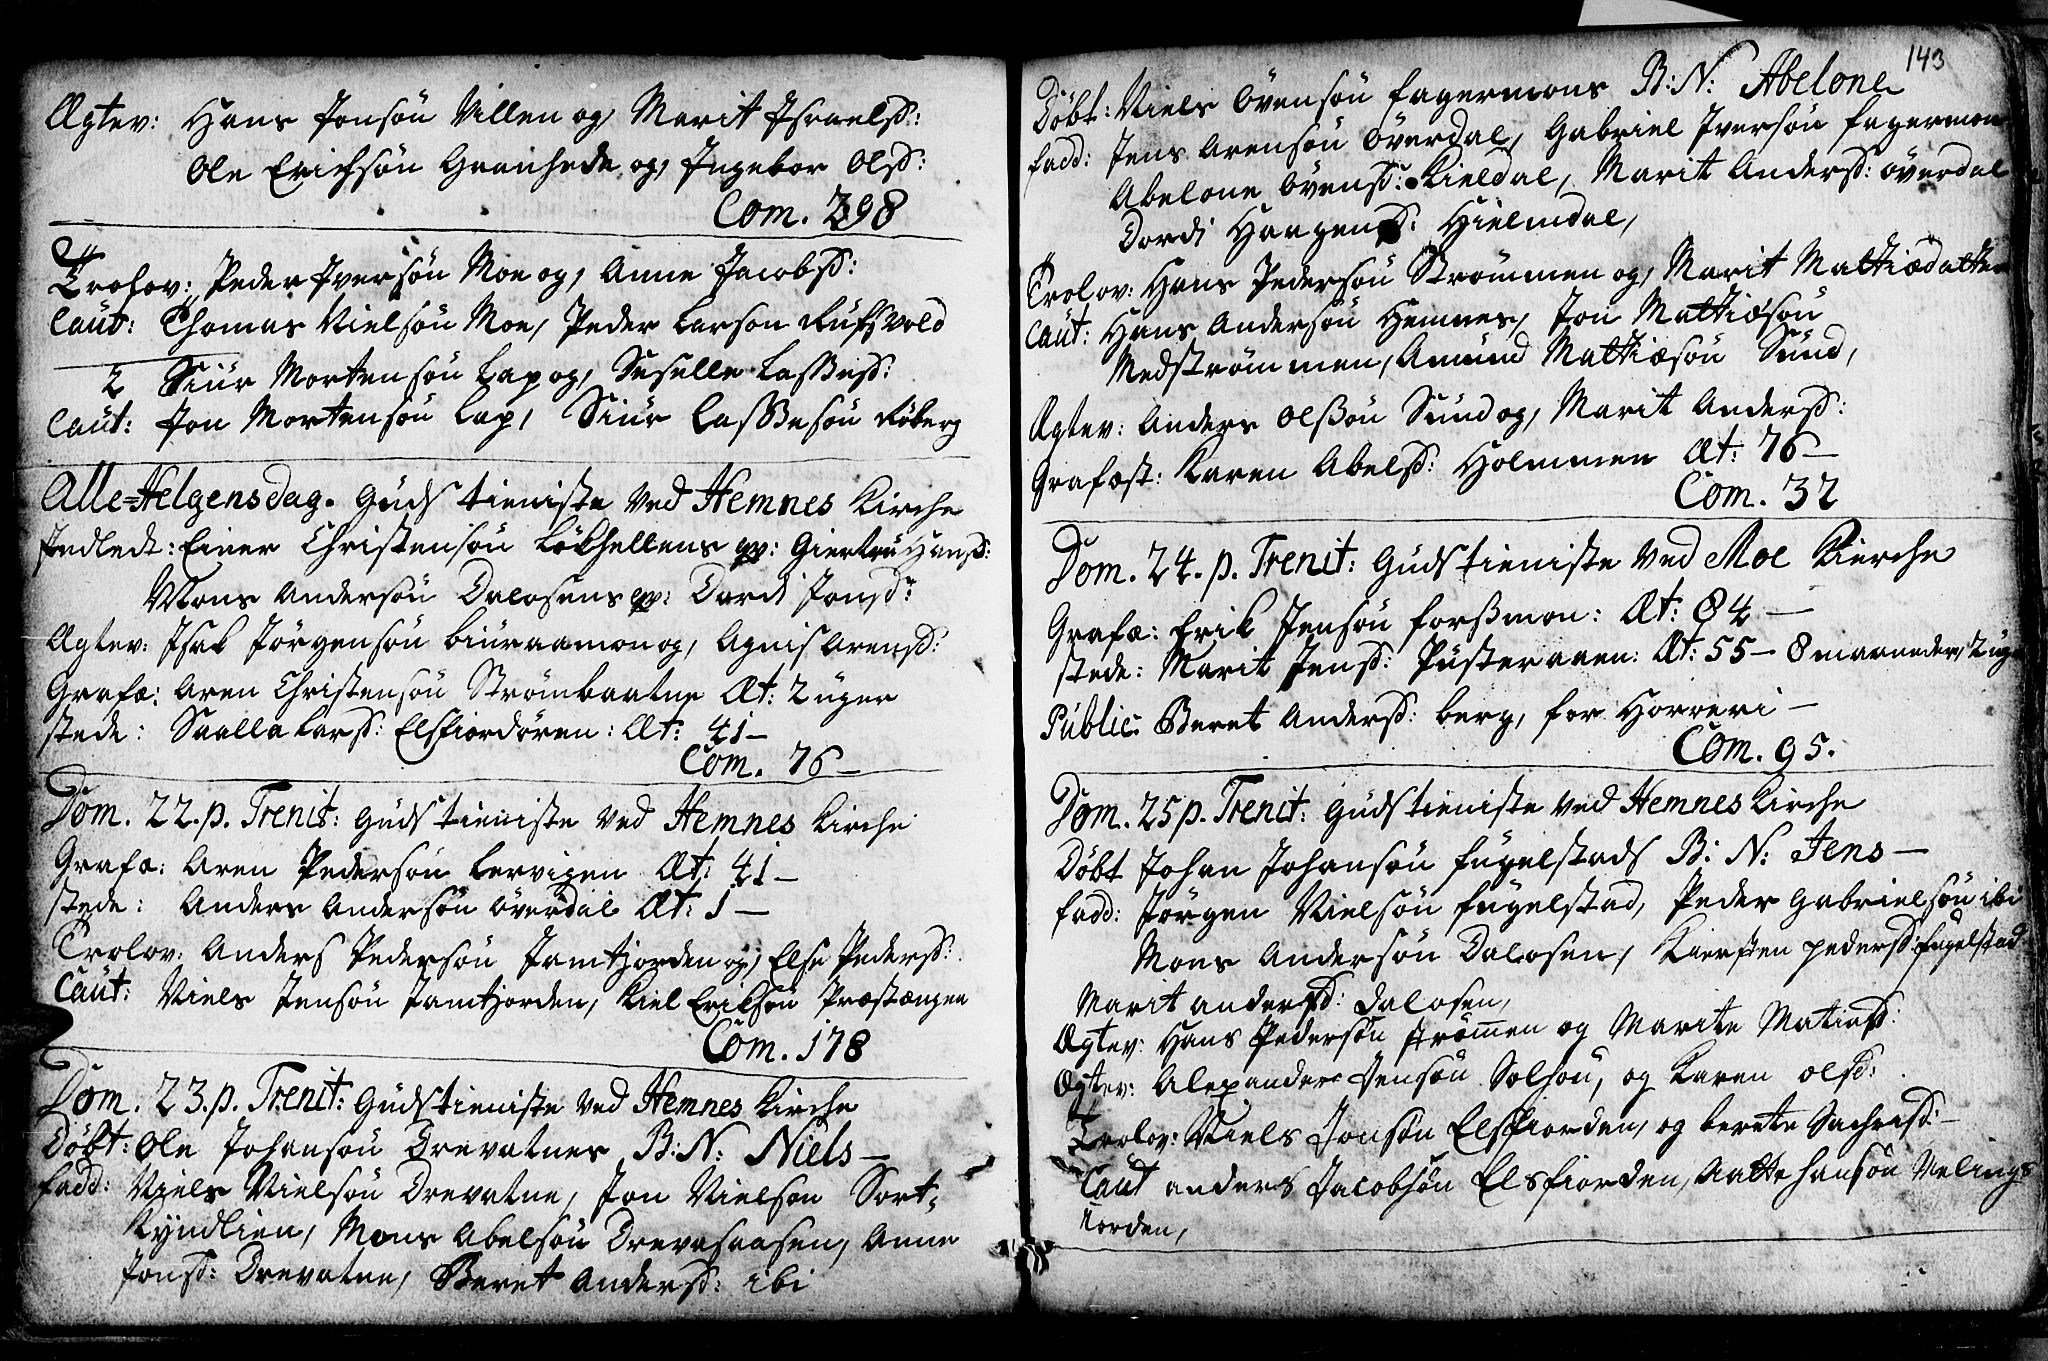 Ægtev: Hans Jonsøn Villen og, Marit Israelsd:
Ole Erichsøn Granhede og, Ingebor Olsd:
Com. 298
Trolov: Peder Iversøn Moe og, Anne Jacobsd:
Caut: Thomas Nielsøn Moe, Peder Larson Rufsvold
2 Siur Mortensøn Lap og, Seselle Lassesd:
Caut: Jon Mortensøn Lap, Siur Lassesøn Røberg
Alle-Helgensdag. Guds tieniste ved Hemnes Kirche
Indledt: Einer Christensøn Løkhellens qv: Giertru Hansd:
Mons Andersøn Dalosens qv: Dordi Jonsd:
Ægtev: Isak Jørgensøn Biuraamon og, Agnis Arensd:
Grafæ: Aren Christensøn Strømbaatne Æt: 2 uger
stede: Saalla Larsd: Elsfiordøren: Æt: 41-
Com. 76-
Dom. 22. p. Trenit: Guds tieniste ved Hemnes Kirche
Grafæ: Aren Pedersøn Lervigen Æt: 41-
stede: Anders Andersøn Överdal Æt: 1-
Trolov: Anders Pedersøn Jamtjorden og, Else Pedersd:
Caut: Niels Jensøn Jamtjorden, Kiel Eriksøn Præstængen
Com. 178
Dom. 23. p. Trenit: Gudstieniste ved Hemnes Kirche
Döbt: Ole Johansøn Drevatnes B: N: Niels-
fadd: Niels Nielsøn Drevatne, Jon Nielson Sort-
Kyndlien, Mons Abelsøn Drevasaasen, Anne
Jonsd: Drevatne, Beret Andersd: ibi
143
Döbt: Niels Övensøn fagermons B: N: Abelone
fadd: Jens Arensøn Överdal, Gabriel Iversøn fagermon
Abelone Övensd: Kieldal, Marit Andersd: överdal
Dordi Haagensd: Hielmdal,
Trolov: Hans Pedersøn Strømmen og, Marit Mattiædatter
Caut: Hans Andersøn Hemnes, Jon Mattiæsøn
Medstrømmen, Amund Mattiæsøn Sund,
Ægtev: Anders Olssøn Sund og, Marit Andersd:
Grafæst: Karen Abelsd: Holmmen Æt: 76-
Com. 32
Dom. 24. p. Trenit: Guds tieniste ved Moe Kierche
Grafæ: Erik Jensøn forssmon: Æt: 84-
stede: Marit Jensd: Pusteraaen: Æt: 55- 8 maaneder, 2 uge
Public: Beret Andersd: berg, for Horreri-
Com. 95.
Dom. 25 p. Trenit: Guds tieniste ved Hemnes Kirche
Döbt Johan Johansøn fugelstads B: N: Jens-
fadd: Jørgen Nielsøn fugelstad, Peder Gabrielsøn ibi
Mons Andersøn Dalosen, Kiersten pedersd: fugelstad
Marit andersd: Dalosen,
Ægtev: Hans Pedersøn strømen og Marite Matiæsd:
Ægtev: Alexander Jensøn Solhou, og Karen olsd:
Trolov: Niels Jonsøn Elsfiorden, og berete Sachrisd:-
Caut anders Jacobsøn Elsfiorden, Aatte hansøn Velings
Jorden,